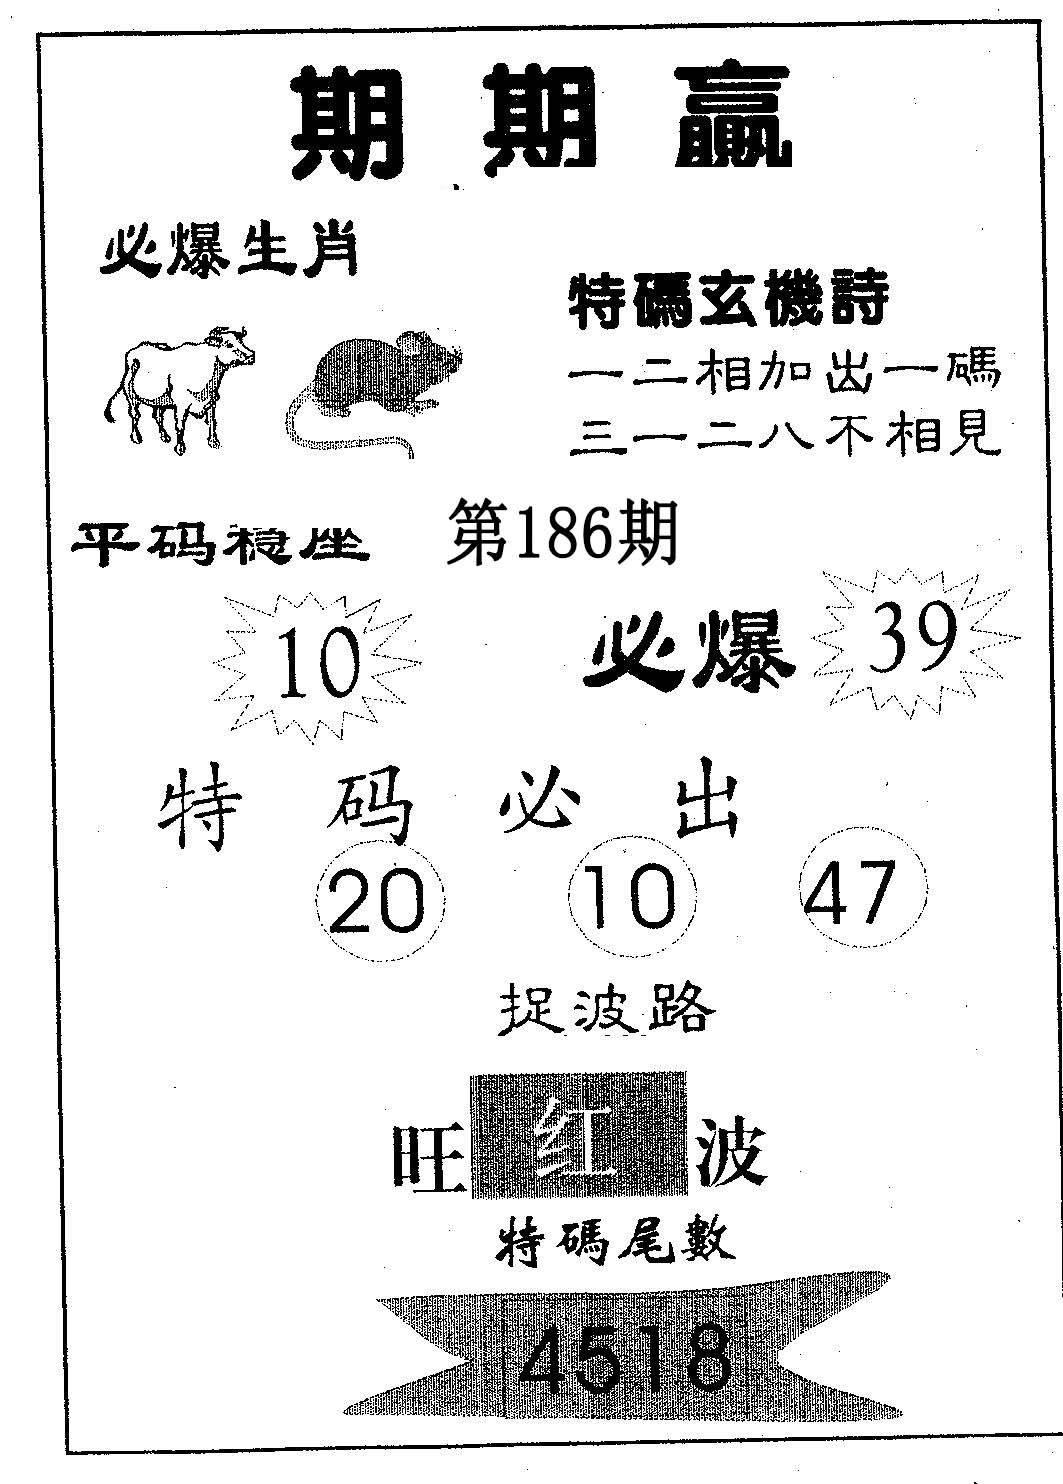 期期贏
必爆生肖
特碼玄機詩
一二相加出一碼
三一二八不相見
平码稳座
第186期
10
必爆
39
特码必出
20 10 47
捉波路
旺红波
特碼尾數
4518